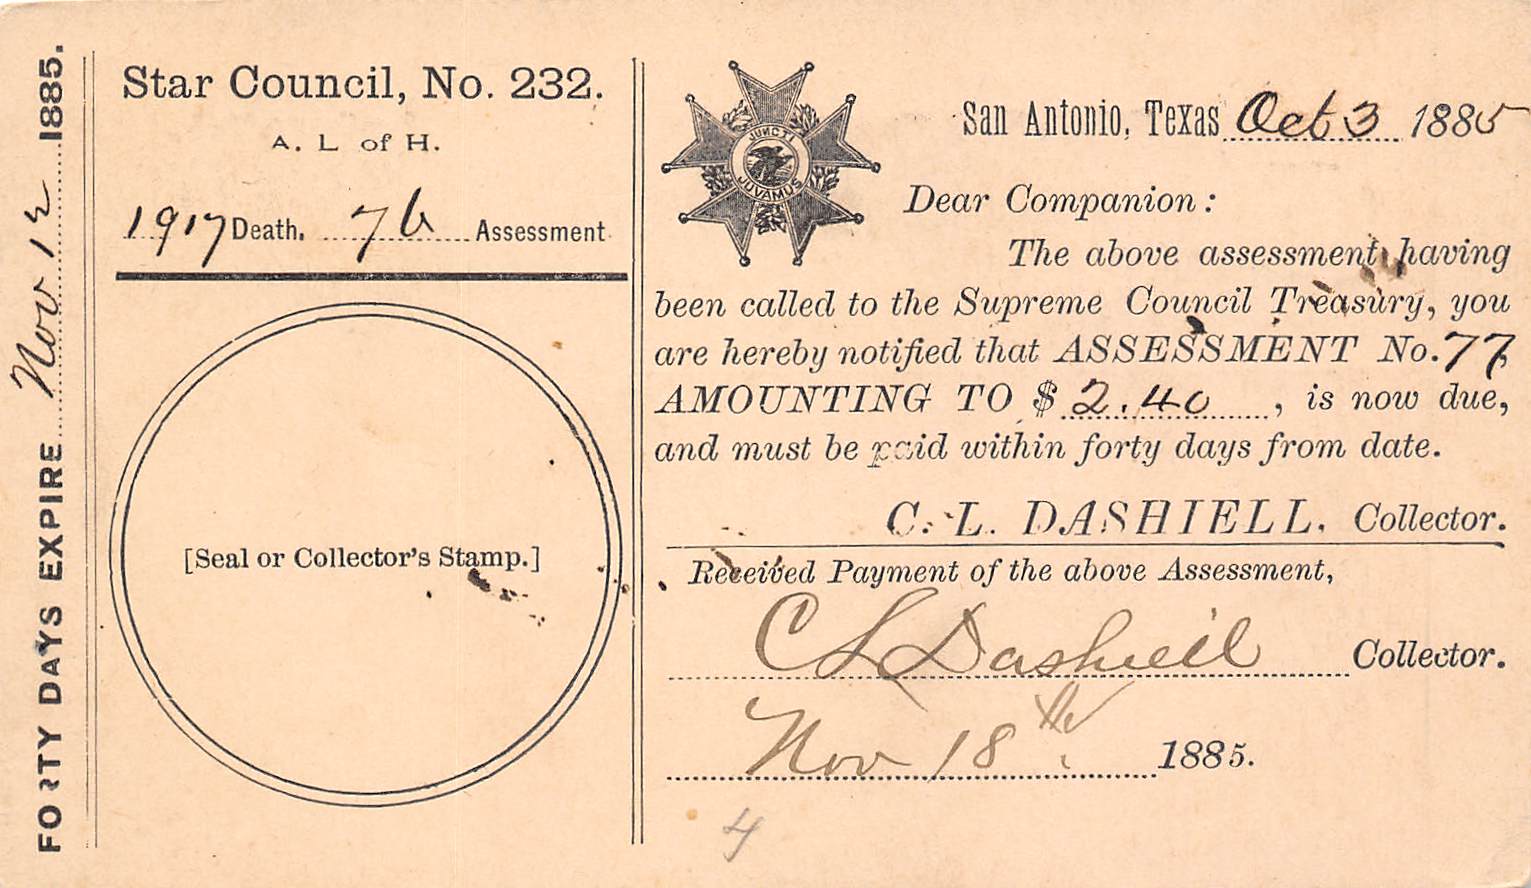 FORTY DAYS EXPIRE Nov 12 1885.
Star Council, No. 232.
A. L of H.
1917 Death, 76 Assessment
[Seal or Collector's Stamp.]
JUNCTI
JUVAMUS
San Antonio, Texas Oct 3 1885
Dear Companion:
The above assessment having
been called to the Supreme Council Treasury, you
are hereby notified that ASSESSMENT No. 77,
AMOUNTING TO $ 2.40, is now due,
and must be paid within forty days from date.
C. L. DASHIELL, Collector.
Received Payment of the above Assessment,
C L Dashiell Collector.
Nov 18th 1885.
4